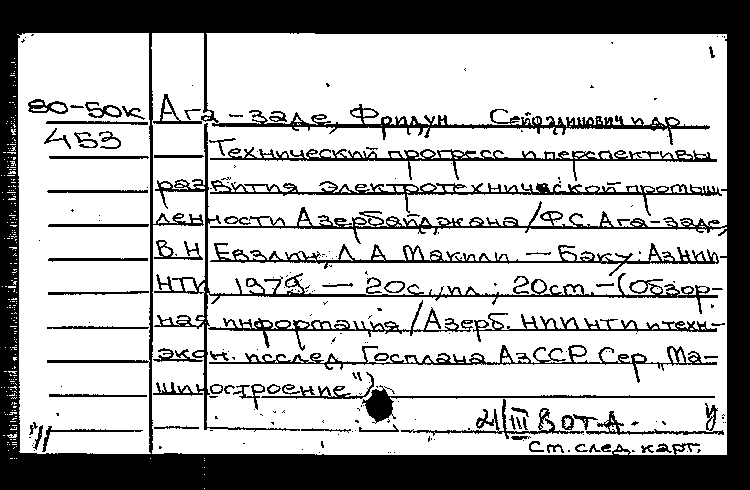 80-50к Ага-заде, Фридун Сейфэдинович и др
453 Технический прогресс и перспективы
развития электротехнической промыш-
ленности Азербайджана / Ф.С. Ага-заде,
В.Н Евзлин, Л А Макили — Баку: АзНИИ-
НТИ, 1979 — 20с., ил.; 20см. — (Обзор-
ная информация / Азерб. НИИ НТИ и техн.-
экон. исслед Госплана АзССР Сер „Ма-
шиностроение")
21/III В ОТ-А
См. след. карт.